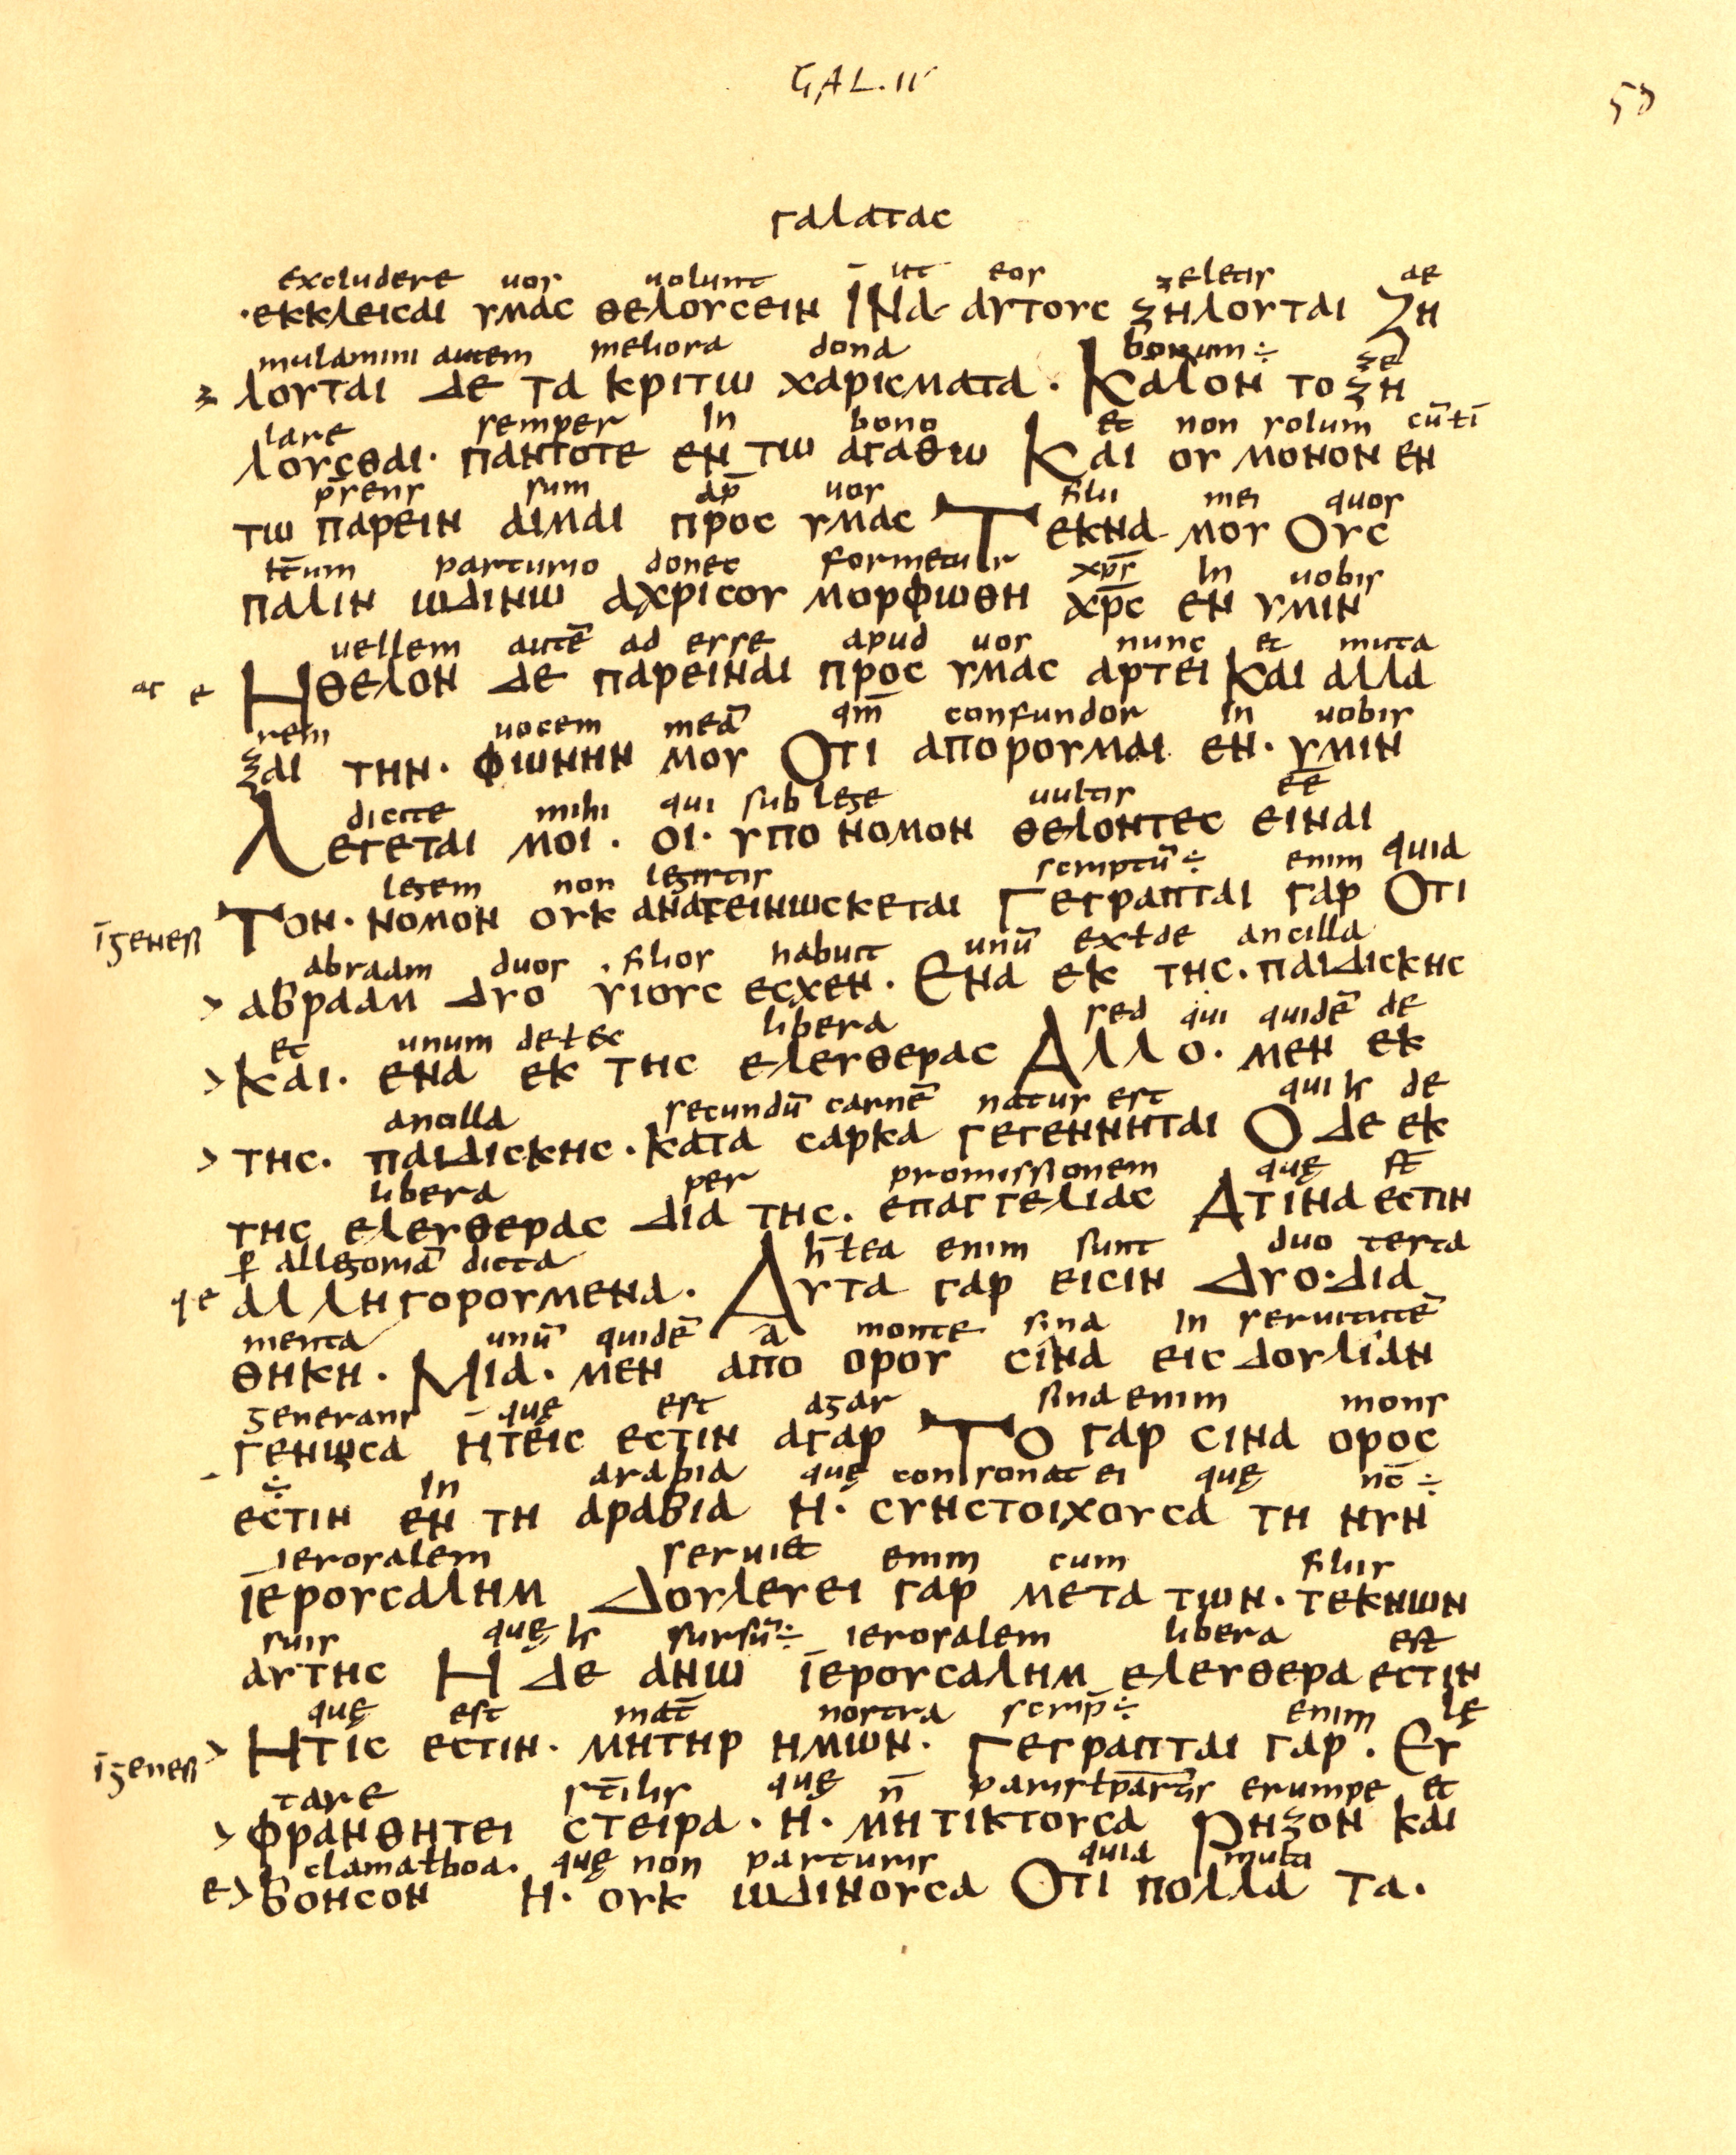 GAL. IV
59
γαλατας
excludere uos uolunt ut eos zeletis ae
εκκλεισαι υμας θελουσειν Ινα αυτους ζηλουται Ζη
mulamini autem meliora dona bonum÷ ze
λουται δε τα κριτω χαρισματα · Καλον το ζη
lare semper In bono et non solum cū tī
λουσθαι · παντοτε εν τω αγαθω Και ου μονον εν
p̄sens sum ap̄ uos filii mei quos
τω παρειν αιμαι προς υμας Τεκνα μου Ους
parturio donec formetur xp̄s In uobis
παλιν ωδινω αχρισου μορφωθη χρ̄ς εν υμιν
uellem autē ad esse apud uos nunc et muta
Ηθελον δε παρειναι προς υμας αρτει Και αλλα
rem uocem meā qm̄ confundor In uobis
ξαι την · φωνην μου Οτι απορουμαι εν · υμιν
dicite mihi qui sub lege uultis ēē
Λεγεται μοι · οι · υπο νομον θελοντες ειναι
legem non legistis scriptū÷ enim quia
Τον · νομον ουκ αναγεινωσκεται Γεγραπται γαρ Οτι
īgenesi
abraam duos filios habuit unū exłde ancilla
> αβρααμ δυο υιους εσχεν · Ενα εκ της · παιδισκης
et unum de libera sed qui quidē de
> Και · ενα εκ της ελευθερας Αλλο · μεν εκ
ancilla secundū carnē natus est qui ħ de
> της · παιδισκης · κατα σαρκα γεγεννηται Ο δε εκ
libera per promissionem quę st̄
της ελευθερας δια της · επαγγελιας Ατινα εστιν
ꝑ allegoriā dicta h̄łea enim sunt duo testa
αλληγορουμενα · Αυτα γαρ εισιν Δυο · δια
menta unū quidē a monte sina In seruitutē
θηκη · Μια · μεν απο ορου σινα εις δουλιαν
generans quę est agar sina enim mons
γενωσα Ητεις εστιν αγαρ Το γαρ σινα ορος
÷ In arabia quę consonat ei quę nc̄÷
εστιν εν τη αραβια Η · συνστοιχουσα τη νυν
ierosalem seruiet enim cum filiis
ιερουσαλημ Δουλευει γαρ μετα των · τεκνων
suis quę ħ sursū÷ ierosalem libera est
αυτης Η δε ανω ιερουσαλημ ελευθερα εστιν
quę est mat̄ nostra scrip̄÷ enim lę
> Ητις εστιν · μητηρ ημων · Γεγραπται γαρ · Ευ
īgenesi
tare st̄ilis quę n̄ parisłparturis erumpe et
> φρανθητει στειρα · Η · μη τικτουσα Ρηξον και
clamałboa · quę non parturis quia multa
> βοησον Η · ουκ ωδινουσα Οτι πολλα τα ·